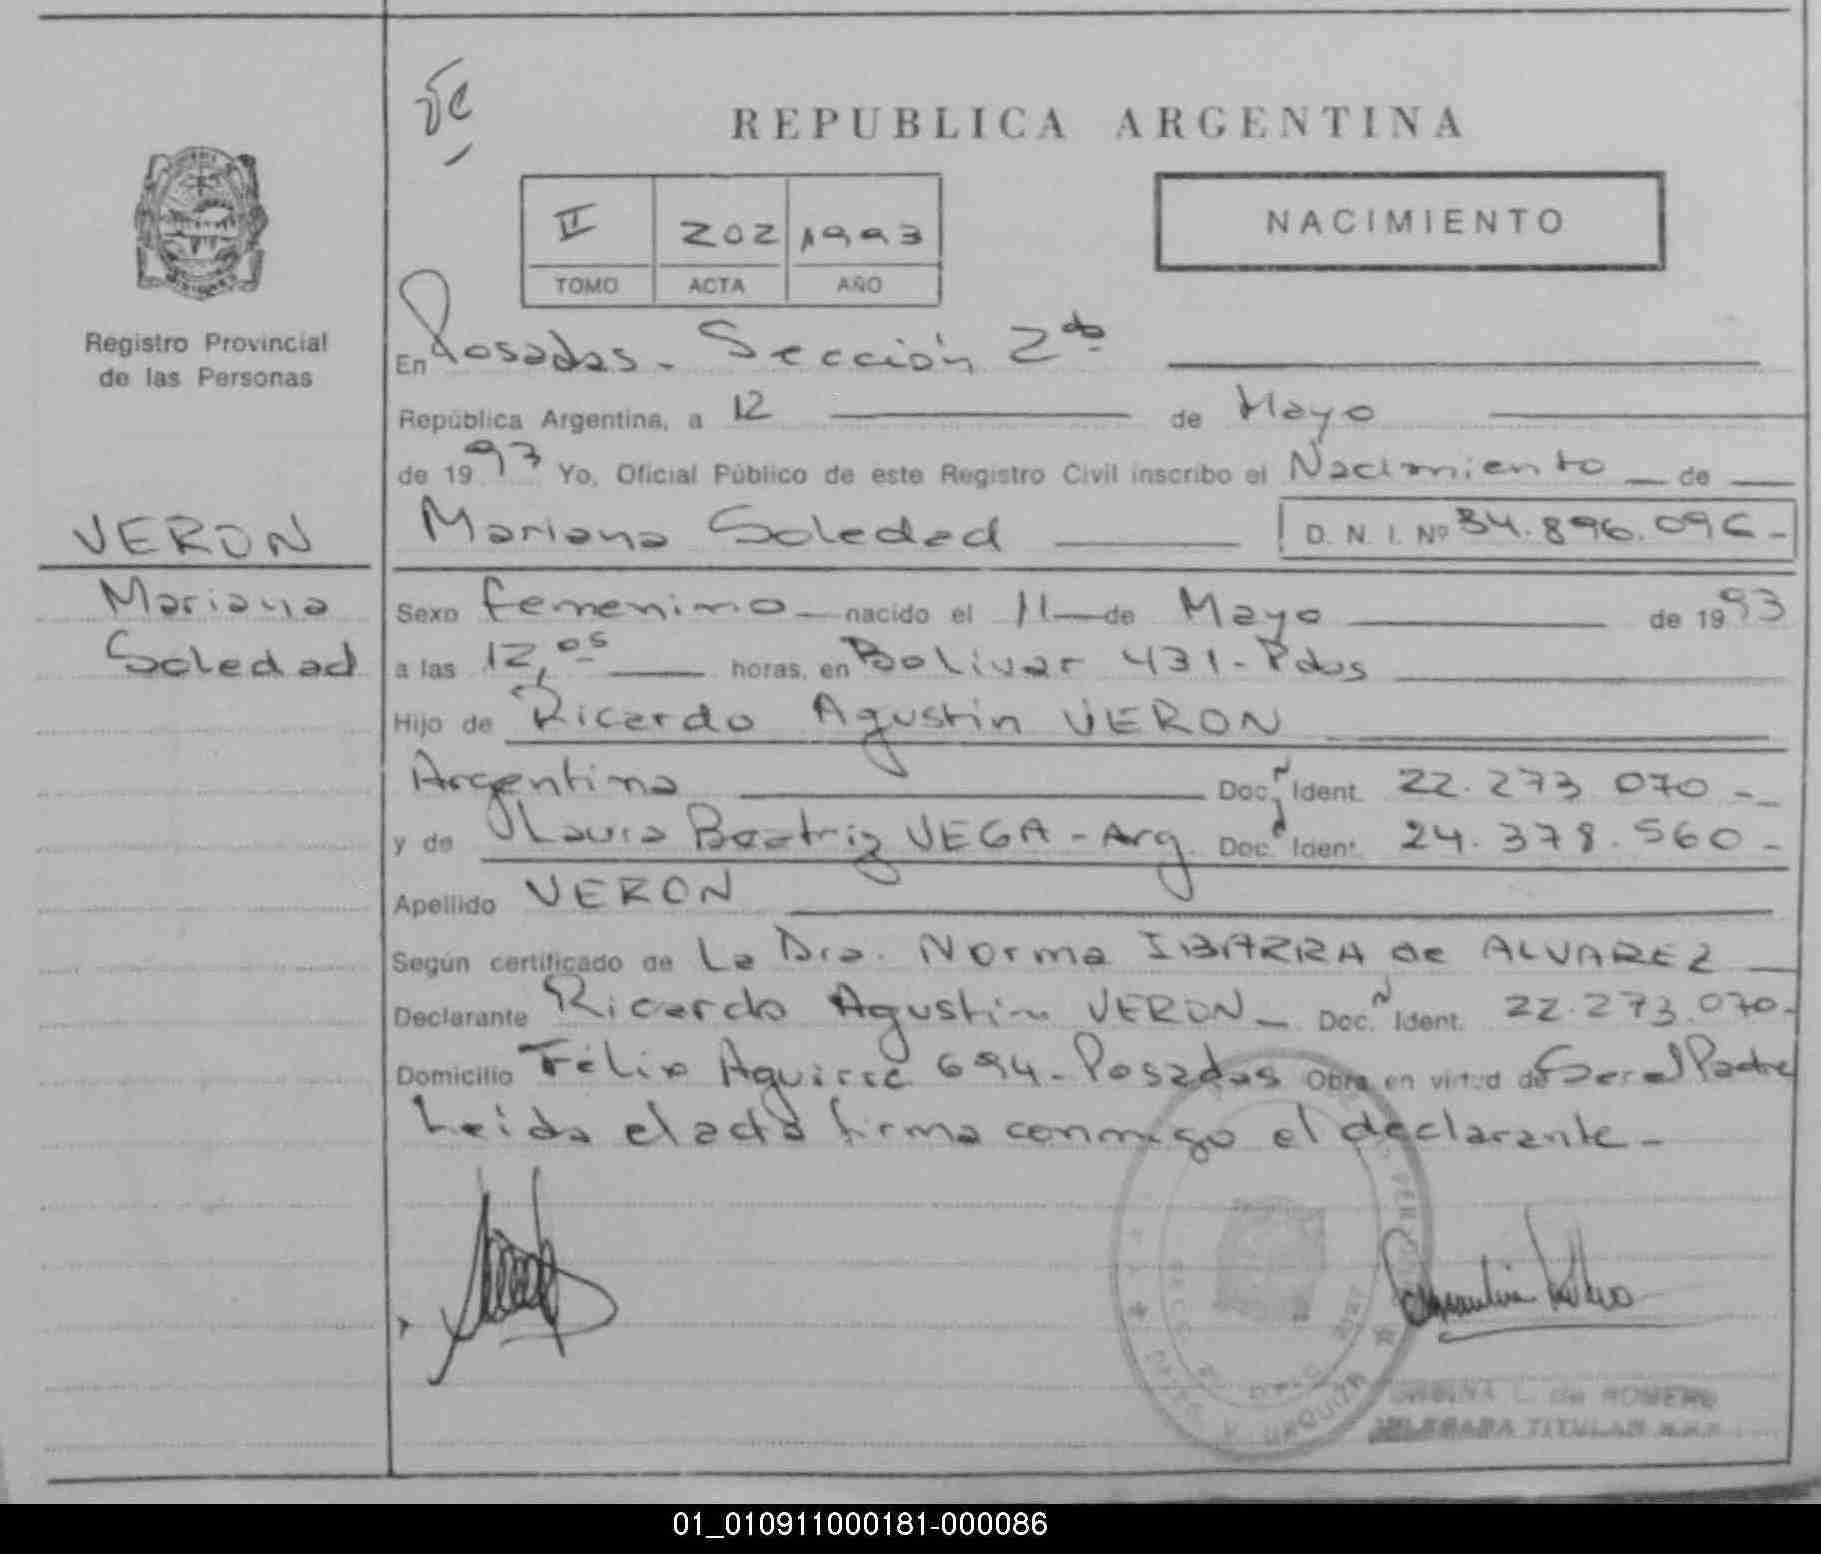 REPUBLICA ARGENTINA
II 202 1993
TOMO ACTA AÑO
NACIMIENTO
Registro Provincial
de las Personas
En Posadas - Sección 2da
República Argentina, a 12 de Mayo
de 1993 Yo, Oficial Público de este Registro Civil inscribo el Nacimiento de
VERON
Mariana Soledad D. N. I. Nº 34.896.096 -
Mariana
Soledad
Sexo femenino nacido el 11 de Mayo de 1993
a las 12,05 horas, en Bolivar 431 - Pdas
Hijo de Ricardo Agustin VERON
Argentino Doc. Ident. 22.273 070 -
y de Laura Beatriz VEGA - Arg. Doc. Ident. 24.378.560 -
Apellido VERON
Según certificado de La Dra. Norma IBARRA de ALVAREZ
Declarante Ricardo Agustin VERON - Doc. Ident. 22.273.070 -
Domicilio Félix Aguirre 694 - Posadas Obra en virtud de Ser el Padre
Leida el acta firma conmigo el declarante -
L. de ROMERO
DELEGADA TITULAR
01_010911000181-000086